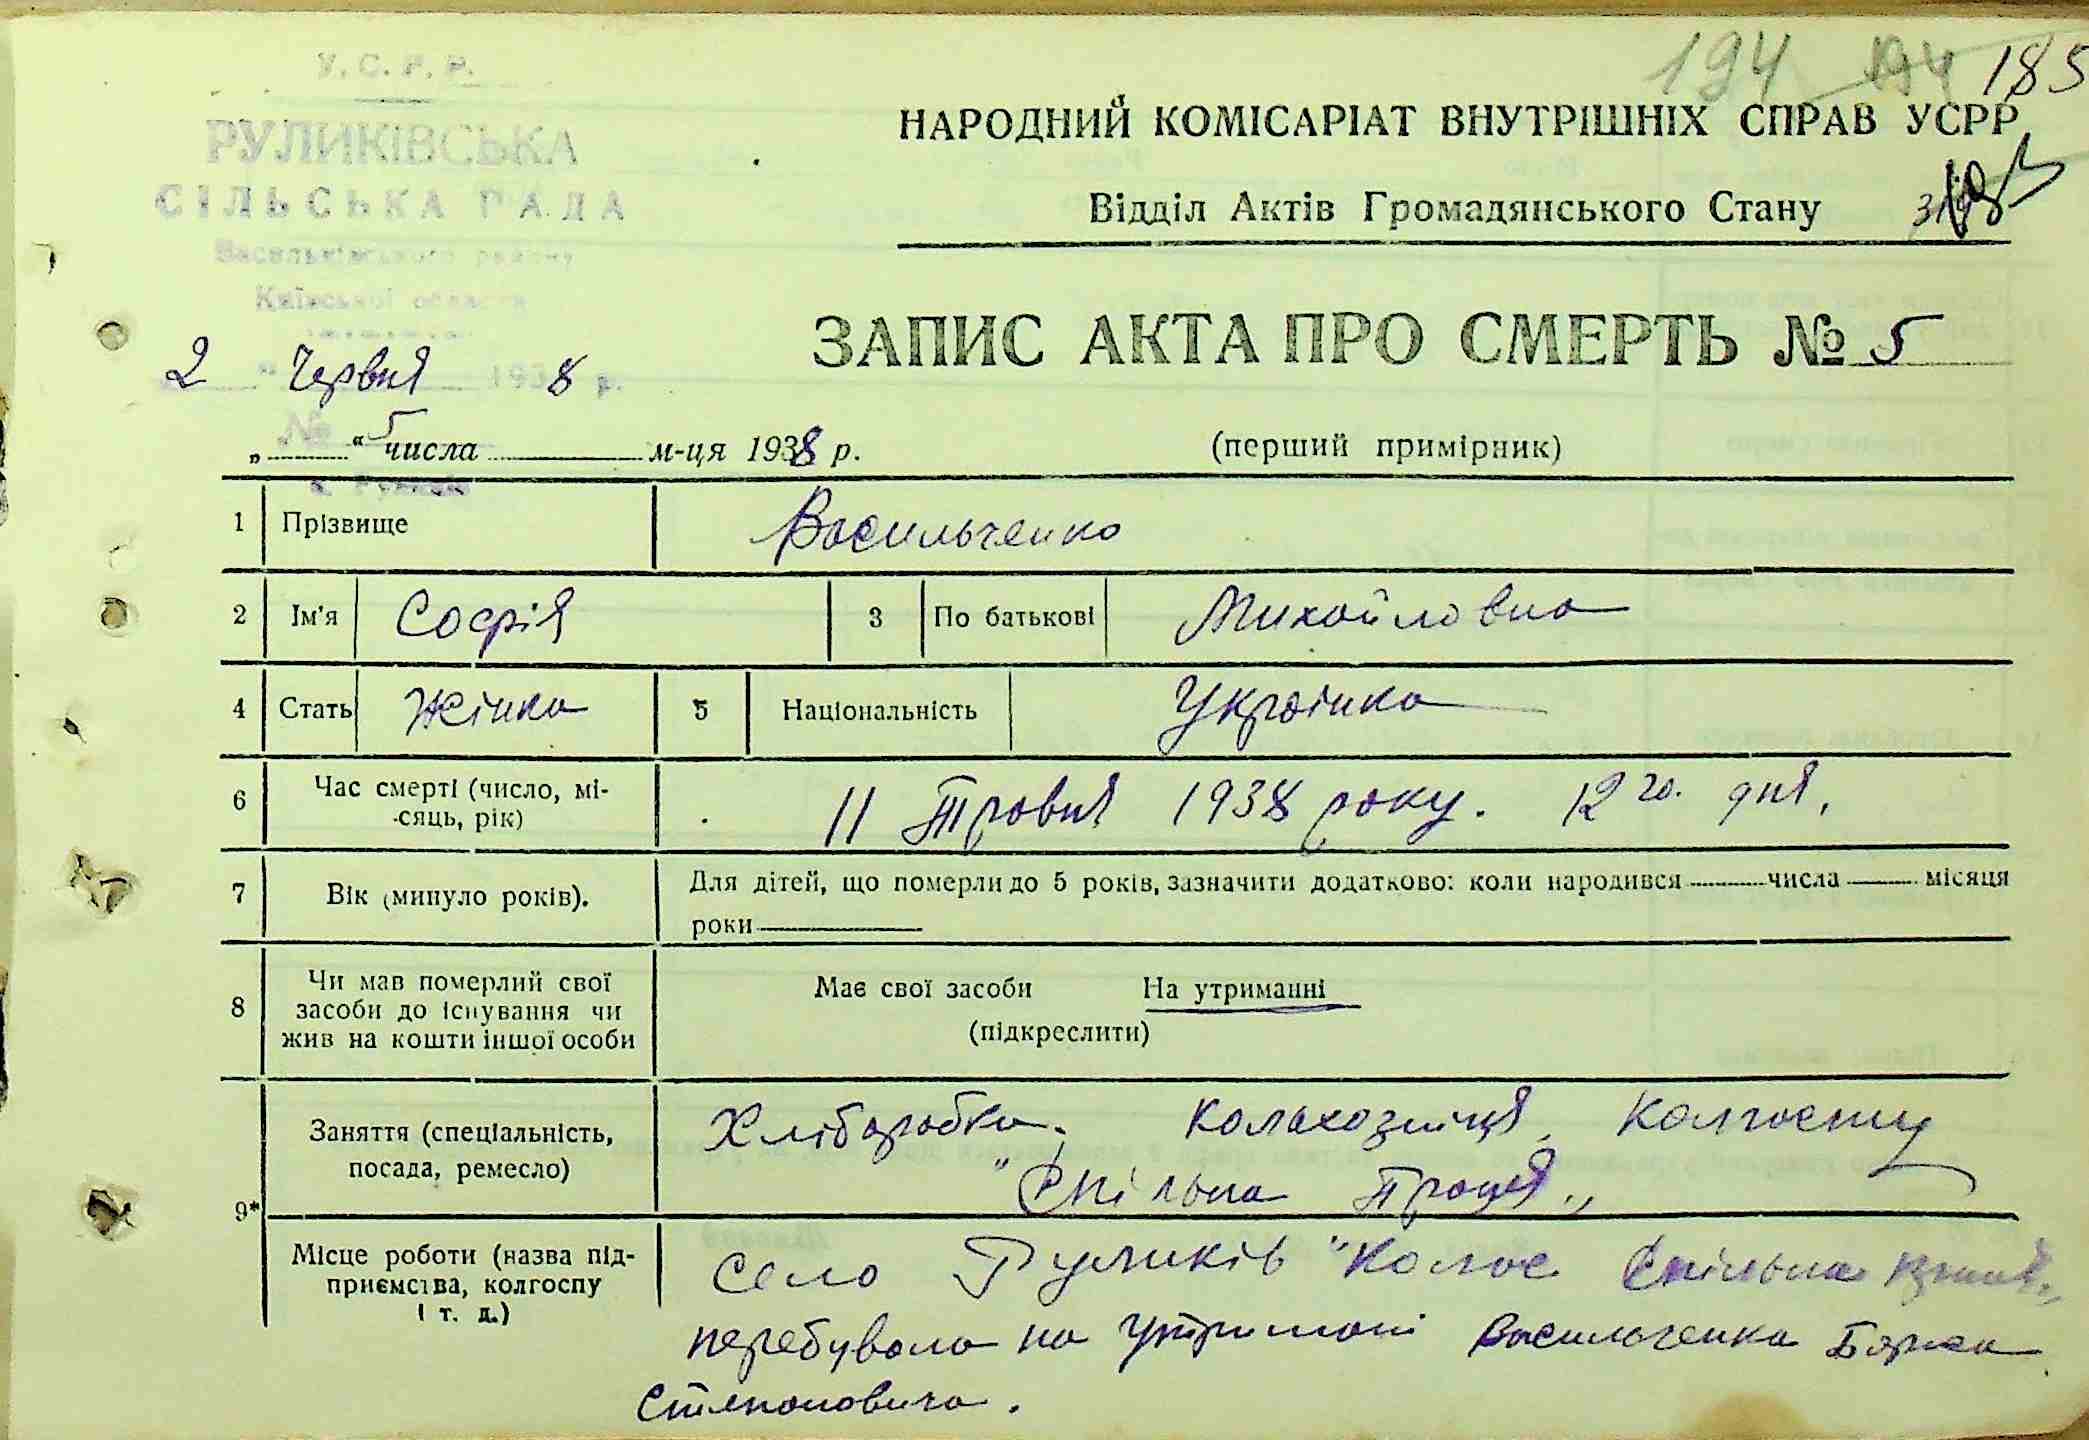 194 194 185
У.С.Р.Р.
РУЛИКІВСЬКА
СІЛЬСЬКА РАДА
Васильківського району
Київської области
2 " Червня 1938 р.
№ 5
с. Руликів
НАРОДНИЙ КОМІСАРІАТ ВНУТРІШНІХ СПРАВ УСРР
Відділ Актів Громадянського Стану
ЗАПИС АКТА ПРО СМЕРТЬ № 5
„ “ числа м-ця 1938 р. (перший примірник)
1 Прізвище Васильченко
2 Ім’я Софія 3 По батькові Михайловна
4 Стать Жінка 5 Національність Українка
6 Час смерті (число, мі-
сяць, рік) 11 Травня 1938 року. 12 го. дня.
7 Вік (минуло років). Для дітей, що померли до 5 років, зазначити додатково: коли народився числа місяця
роки
8 Чи мав померлий свої
засоби до існування чи
жив на кошти іншої особи
Має свої засоби На утриманні
(підкреслити)
9*
Заняття (спеціальність,
посада, ремесло)
Хліборобка. Колхозниця Колгоспу
"Спільна Праця"
Місце роботи (назва під-
приємства, колгоспу
і т. д.)
Село Руликів "Колос Спільна
перебувала на утримані Васильченка
Степановича.